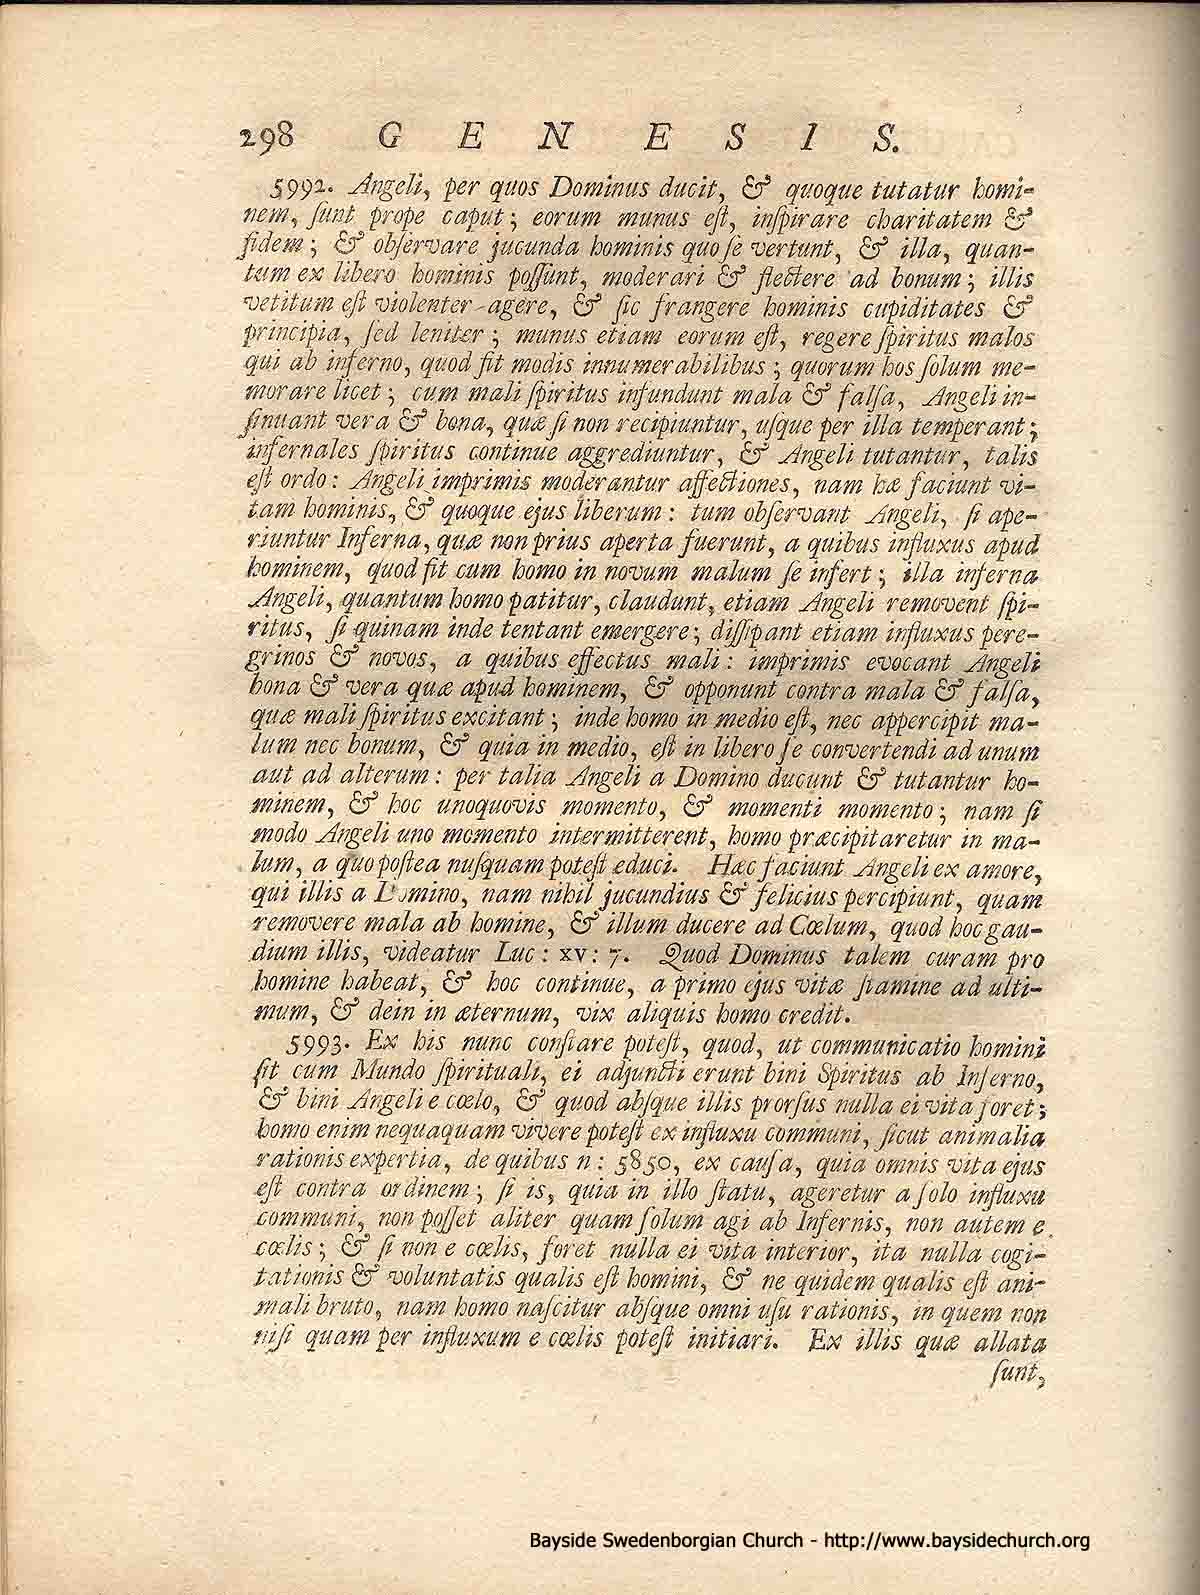 298 GENESIS.
5992. Angeli, per quos Dominus ducit, & quoque tutatur homi-
nem, ſunt prope caput; eorum munus eſt, inſpirare charitatem &
fidem; & obſervare jucunda hominis quo ſe vertunt, & illa, quan-
tum ex libero hominis poſſunt, moderari & flectere ad bonum; illis
vetitum eſt violenter agere, & ſic frangere hominis cupiditates &
principia, ſed leniter; munus etiam eorum eſt, regere ſpiritus malos
qui ab inferno, quod fit modis innumerabilibus; quorum hos ſolum me-
morare licet; cum mali ſpiritus infundunt mala & falſa, Angeli in-
ſinuant vera & bona, quæ ſi non recipiuntur, uſque per illa temperant;
infernales ſpiritus continue aggrediuntur, & Angeli tutantur, talis
eſt ordo: Angeli imprimis moderantur affectiones, nam hæ faciunt vi-
tam hominis, & quoque ejus liberum: tum obſervant Angeli, ſi ape-
riuntur Inferna, quæ non prius aperta fuerunt, a quibus influxus apud
hominem, quod fit cum homo in novum malum ſe infert; illa inferna
Angeli, quantum homo patitur, claudunt, etiam Angeli removent ſpi-
ritus, ſi quinam inde tentant emergere; diſſipant etiam influxus pere-
grinos & novos, a quibus effectus mali: imprimis evocant Angeli
bona & vera quæ apud hominem, & opponunt contra mala & falſa,
quæ mali ſpiritus excitant; inde homo in medio eſt, nec appercipit ma-
lum nec bonum, & quia in medio, eſt in libero ſe convertendi ad unum
aut ad alterum: per talia Angeli a Domino ducunt & tutantur ho-
minem, & hoc unoquovis momento, & momenti momento; nam ſi
modo Angeli uno momento intermitterent, homo præcipitaretur in ma-
lum, a quo poſtea nuſquam poteſt educi. Hæc faciunt Angeli ex amore,
qui illis a Domino, nam nihil jucundius & felicius percipiunt, quam
removere mala ab homine, & illum ducere ad Cœlum, quod hoc gau-
dium illis, videatur Luc: XV: 7. Quod Dominus talem curam pro
homine habeat, & hoc continue, a primo ejus vitæ ſtamine ad ulti-
mum, & dein in æternum, vix aliquis homo credit.
5993. Ex his nunc conſtare poteſt, quod, ut communicatio homini
ſit cum Mundo ſpirituali, ei adjuncti erunt bini Spiritus ab Inferno,
& bini Angeli e cœlo, & quod abſque illis prorſus nulla ei vita foret;
homo enim nequaquam vivere poteſt ex influxu communi, ſicut animalia
rationis expertia, de quibus n: 5850, ex cauſa, quia omnis vita ejus
eſt contra ordinem; ſi is, quia in illo ſtatu, ageretur a ſolo influxu
communi, non poſſet aliter quam ſolum agi ab Infernis, non autem e
cœlis; & ſi non e cœlis, foret nulla ei vita interior, ita nulla cogi-
tationis & voluntatis qualis eſt homini, & ne quidem qualis eſt ani-
mali bruto, nam homo naſcitur abſque omni uſu rationis, in quem non
niſi quam per influxum e cœlis poteſt initiari. Ex illis quæ allata
ſunt,
Bayside Swedenborgian Church - http://www.baysidechurch.org